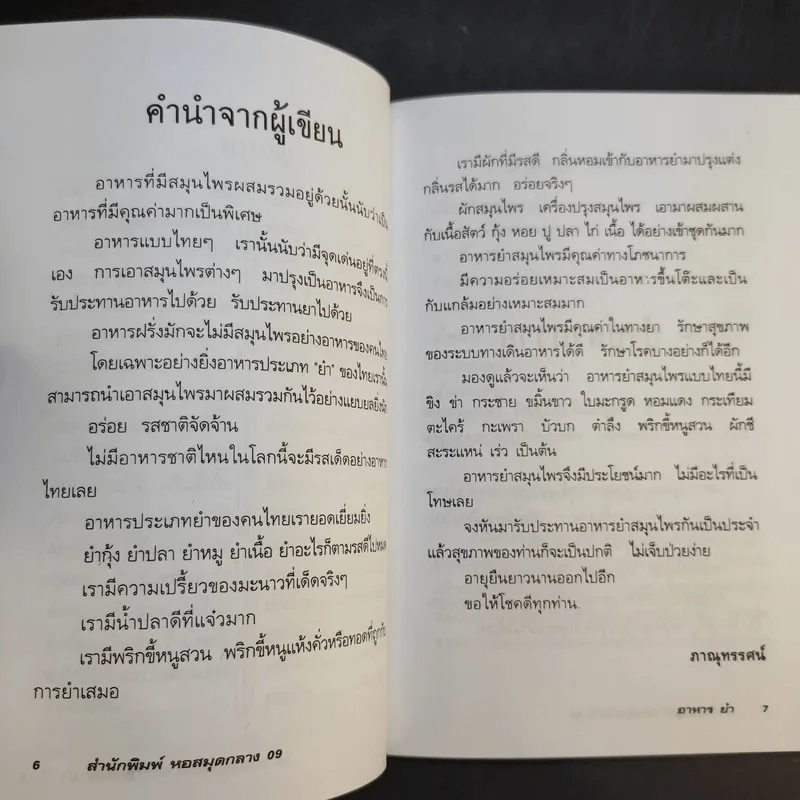 คำนำจากผู้เขียน
อาหารที่มีสมุนไพรผสมรวมอยู่ด้วยนั้นนับว่าเป็น
อาหารที่มีคุณค่ามากเป็นพิเศษ
อาหารแบบไทยๆ เรานั้นนับว่ามีจุดเด่นอยู่ที่ตรงนี้
เอง การเอาสมุนไพรต่างๆ มาปรุงเป็นอาหารจึงเป็นการ
รับประทานอาหารไปด้วย รับประทานยาไปด้วย
อาหารฝรั่งมักจะไม่มีสมุนไพรอย่างอาหารของคนไทย
โดยเฉพาะอย่างยิ่งอาหารประเภท "ยำ" ของไทยเรานั้น
สามารถนำเอาสมุนไพรมาผสมรวมกันไว้อย่างแยบยลยิ่งนัก
อร่อย รสชาติจัดจ้าน
ไม่มีอาหารชาติไหนในโลกนี้จะมีรสเด็ดอย่างอาหาร
ไทยเลย
อาหารประเภทยำของคนไทยเรายอดเยี่ยมยิ่ง
ยำกุ้ง ยำปลา ยำหมู ยำเนื้อ ยำอะไรก็ตามรสดีไปหมด
เรามีความเปรี้ยวของมะนาวที่เด็ดจริงๆ
เรามีน้ำปลาดีที่แจ๋วมาก
เรามีพริกขี้หนูสวน พริกขี้หนูแห้งคั่วหรือทอดที่ถูกกับ
การยำเสมอ
6 สำนักพิมพ์ หอสมุดกลาง 09
เรามีผักที่มีรสดี กลิ่นหอมเข้ากับอาหารยำมาปรุงแต่ง
กลิ่นรสได้มาก อร่อยจริงๆ
ผักสมุนไพร เครื่องปรุงสมุนไพร เอามาผสมผสาน
กับเนื้อสัตว์ กุ้ง หอย ปู ปลา ไก่ เนื้อ ได้อย่างเข้าชุดกันมาก
อาหารยำสมุนไพรมีคุณค่าทางโภชนาการ
มีความอร่อยเหมาะสมเป็นอาหารขึ้นโต๊ะและเป็น
กับแกล้มอย่างเหมาะสมมาก
อาหารยำสมุนไพรมีคุณค่าในทางยา รักษาสุขภาพ
ของระบบทางเดินอาหารได้ดี รักษาโรคบางอย่างก็ได้อีก
มองดูแล้วจะเห็นว่า อาหารยำสมุนไพรแบบไทยนี้มี
ขิง ข่า กระชาย ขมิ้นขาว ใบมะกรูด หอมแดง กระเทียม
ตะไคร้ กะเพรา บัวบก ตำลึง พริกขี้หนูสวน ผักชี
สะระแหน่ เร่ว เป็นต้น
อาหารยำสมุนไพรจึงมีประโยชน์มาก ไม่มีอะไรที่เป็น
โทษเลย
จงหันมารับประทานอาหารยำสมุนไพรกันเป็นประจำ
แล้วสุขภาพของท่านก็จะเป็นปกติ ไม่เจ็บป่วยง่าย
อายุยืนยาวนานออกไปอีก
ขอให้โชคดีทุกท่าน.
ภาณุทรรศน์
อาหาร ยำ 7